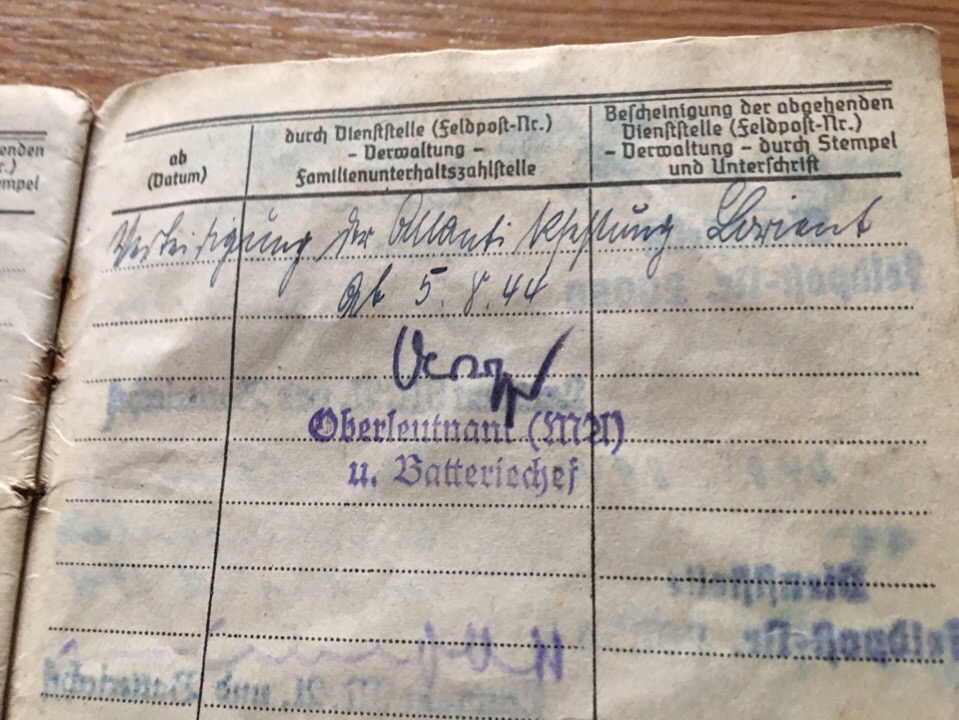 enden
r.)
mpel
ab
(Datum)
durch Dienststelle (Feldpost-Nr.)
– Verwaltung –
Familienunterhaltszahlstelle
Bescheinigung der abgehenden
Dienststelle (Feldpost-Nr.)
– Verwaltung – durch Stempel
und Unterschrift
Verteidigung der Atlantikfestung Lorient
Ab 5.8.44
Oberleutnant (MA)
u. Batteriechef
Feldpost-Nr.
Dienststelle
Feldpost-Nr.
und Batteriechef